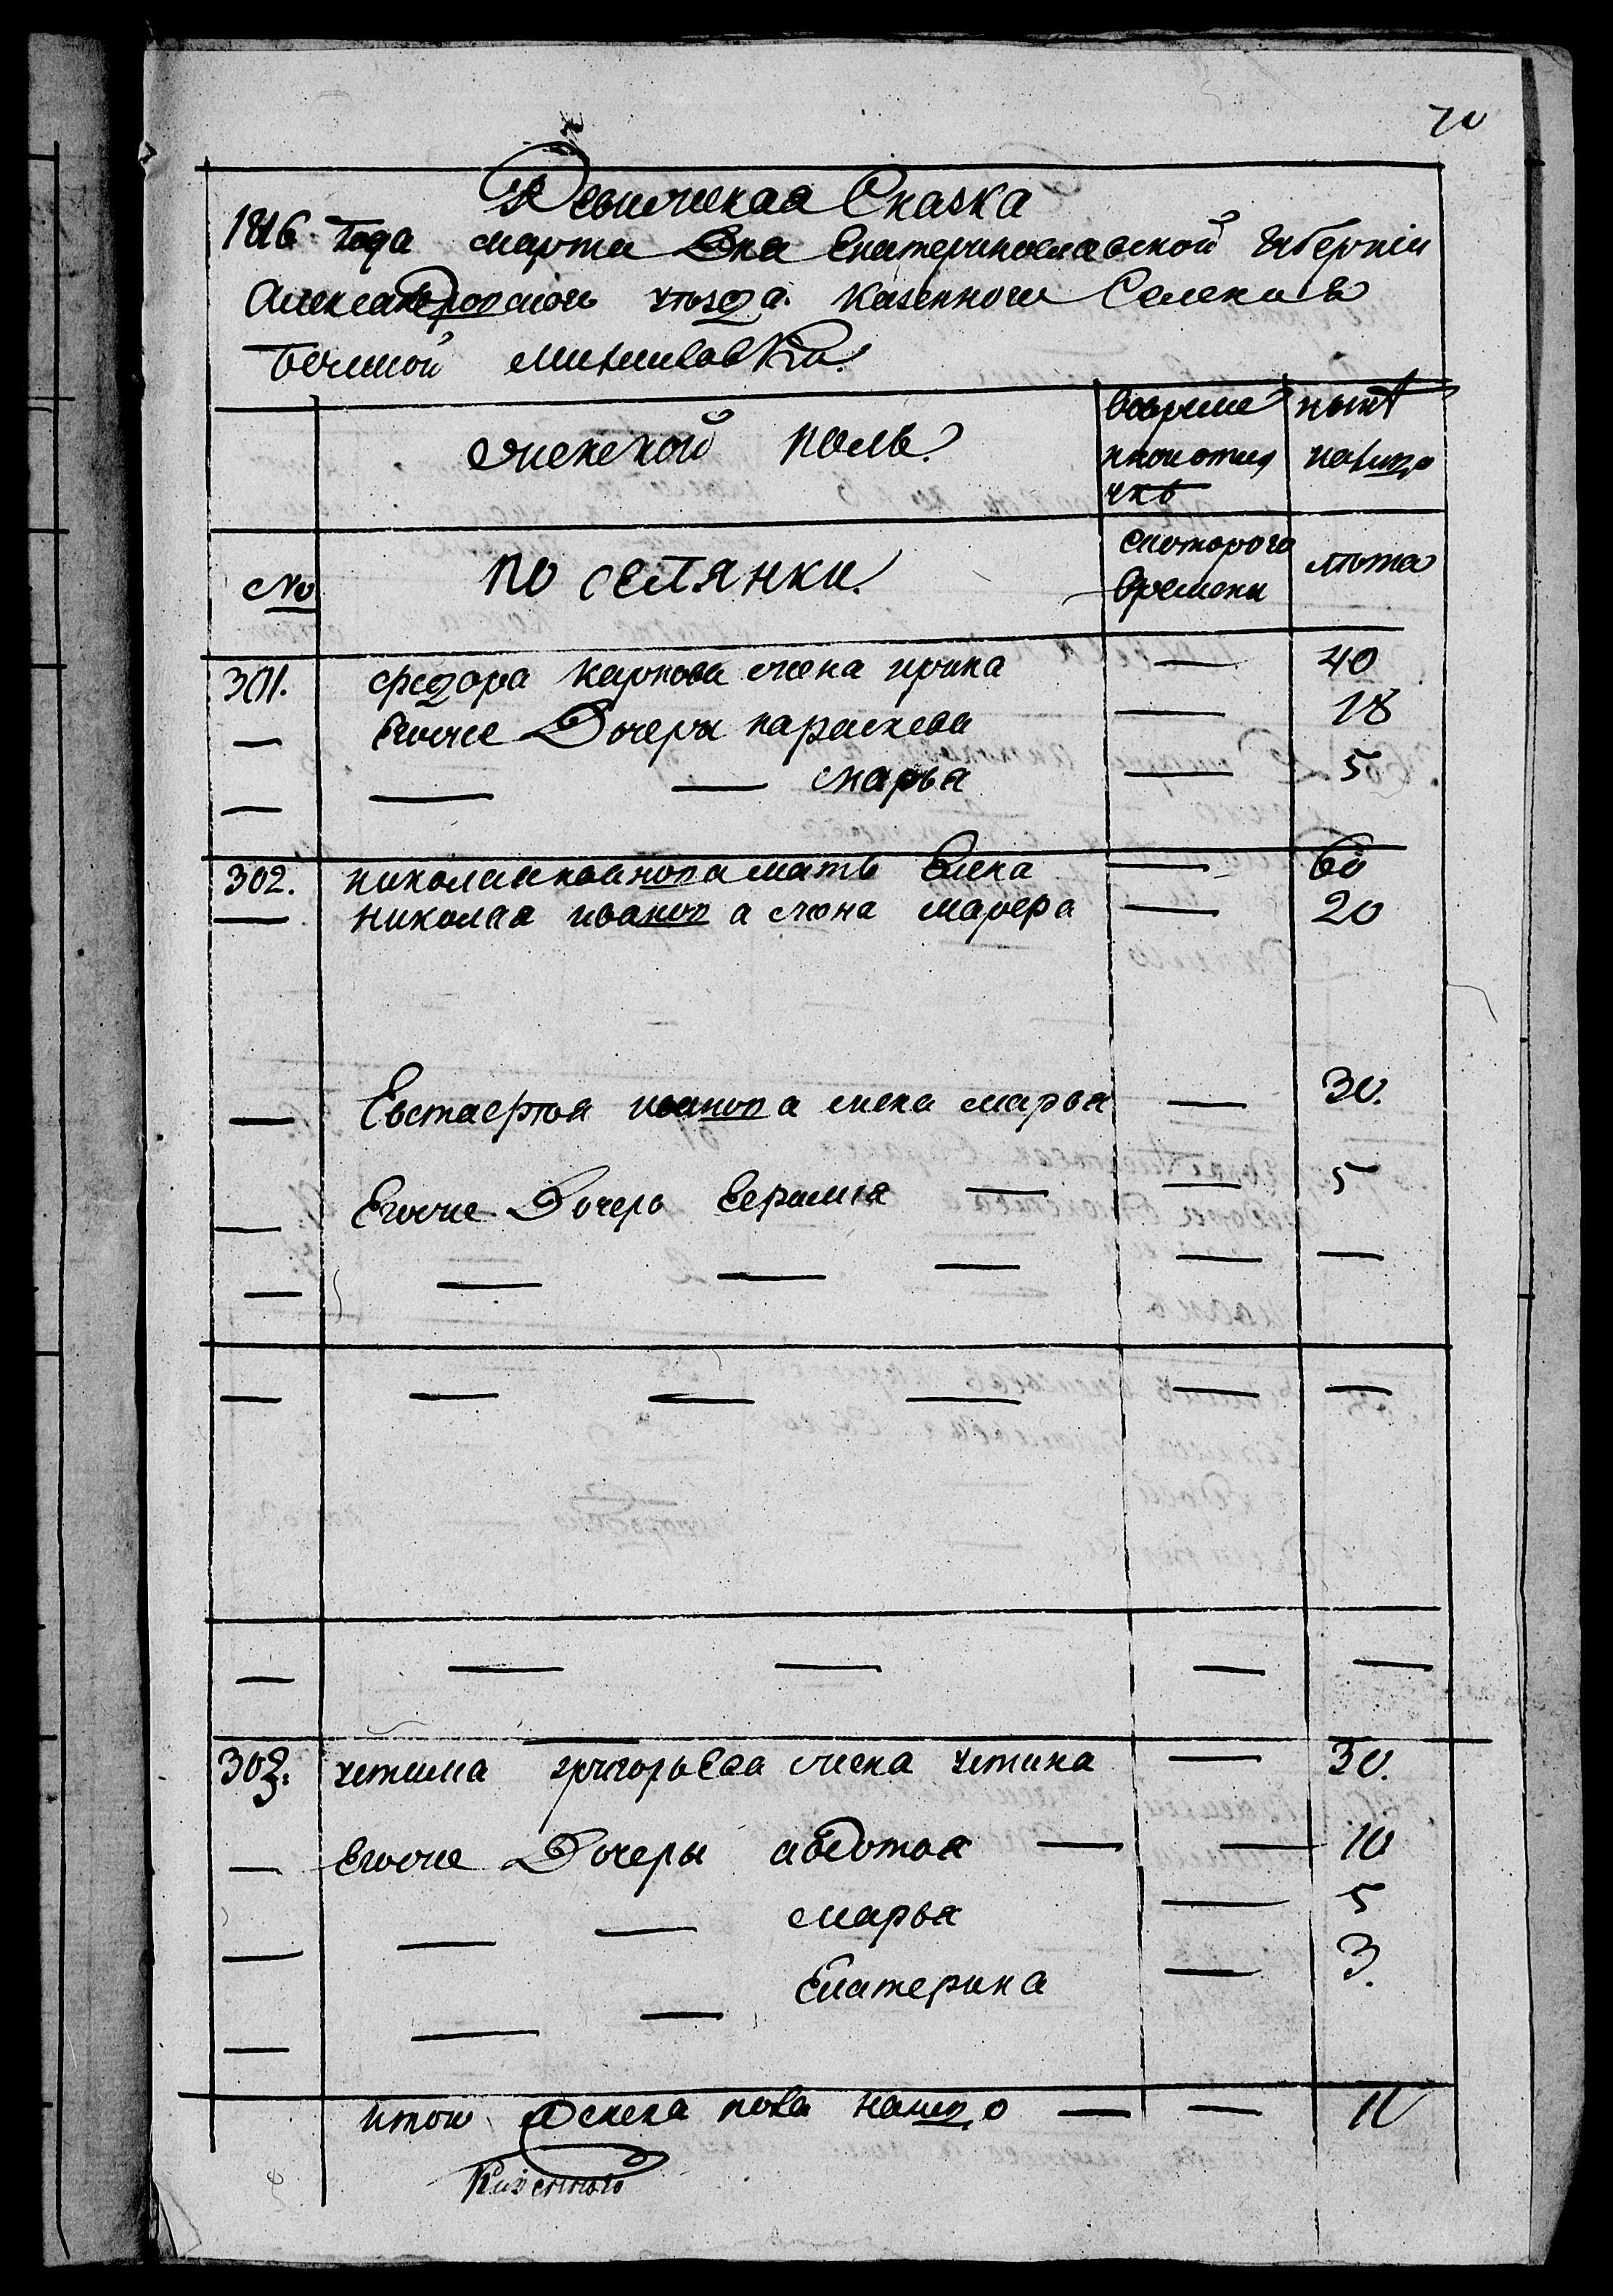 70
Ревиская Сказка
1816 года марта Дня Екатеринославской Губернiи
Александровского уѣзда Казенного Селения
Михайловки
женской полъ.
вовремянной отлучкѣ
нынѣ налицо
№
поселянки
с котораго времени
лѣта
301. Федора Карпова жена ирина — 40
— Егоже Дочери параскева — 18
— — — марья — 5
302. николая иванова мать Елена — 60
— николая иванова жена марфа — 20
— Евстафтья иванова жена марья — 30.
— Егоже Дочерь Ефимия — — 5
— — — — — —
— — — — — —
— — — — —
303. устима григорьева жена устина — 30.
— Егоже Дочери авдотья — — 10
— — — марья — 5
— — — Екатерина — 3.
итого женска пола налицо — — 11
Казенного